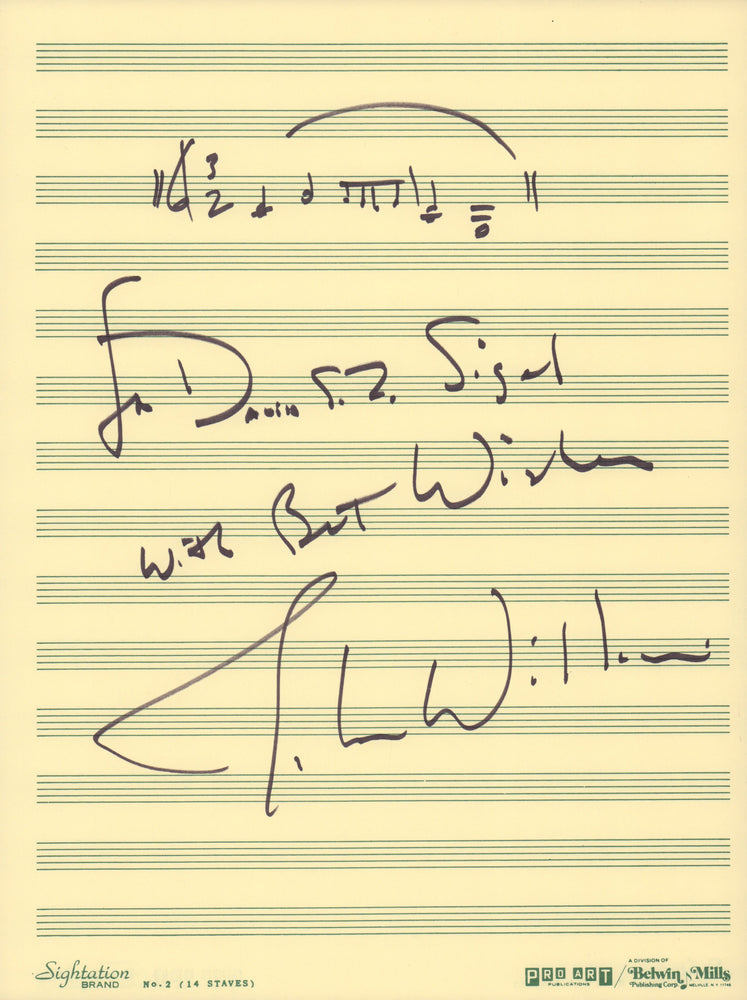 3
2
For David S. Z. Sigal
With Best Wishes
John Williams
Sightation
BRAND No. 2 (14 STAVES)
PRO ART PUBLICATIONS
A DIVISION OF
Belwin Mills
Publishing Corp. MELVILLE, N.Y. 11746